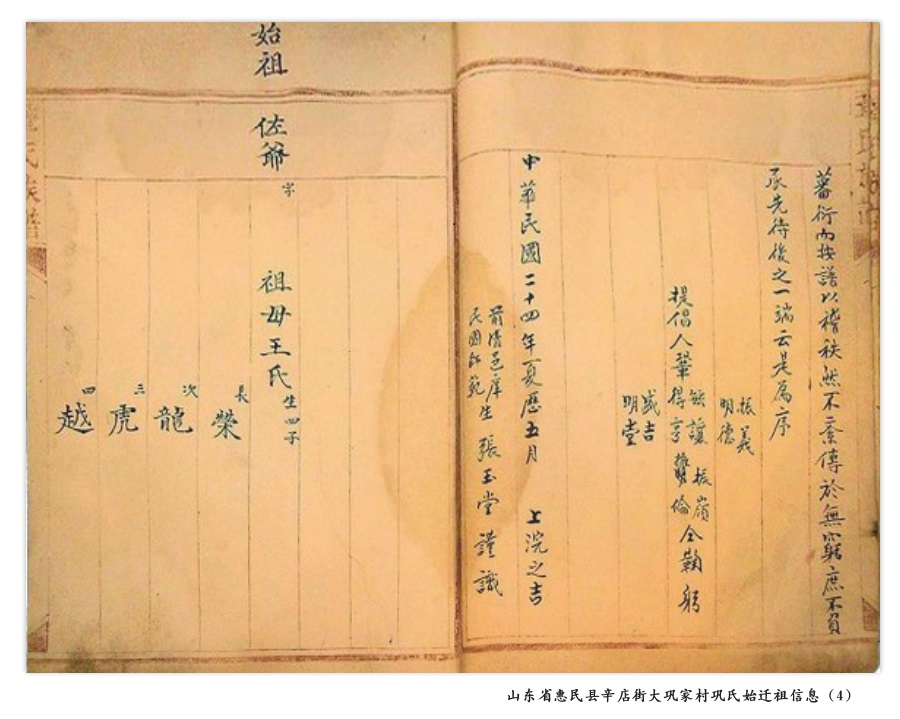 蕃衍而按譜以稽秩然不紊傳於無窮庶不負
承先待後之一端云是為序
振義
明德
提倡人鞏
讓 振嶺
得亨 明倫 仝鞠躬
盛吉
明堂
中華民國二十四年夏歷五月 上浣之吉
前清邑庠生
民國師範
張玉堂 謹識
始祖 佐爺 字
祖母王氏 生四子
長 榮
次 龍
三 虎
四 越
氏族譜
山东省惠民县辛店街大巩家村巩氏始迁祖信息（4）